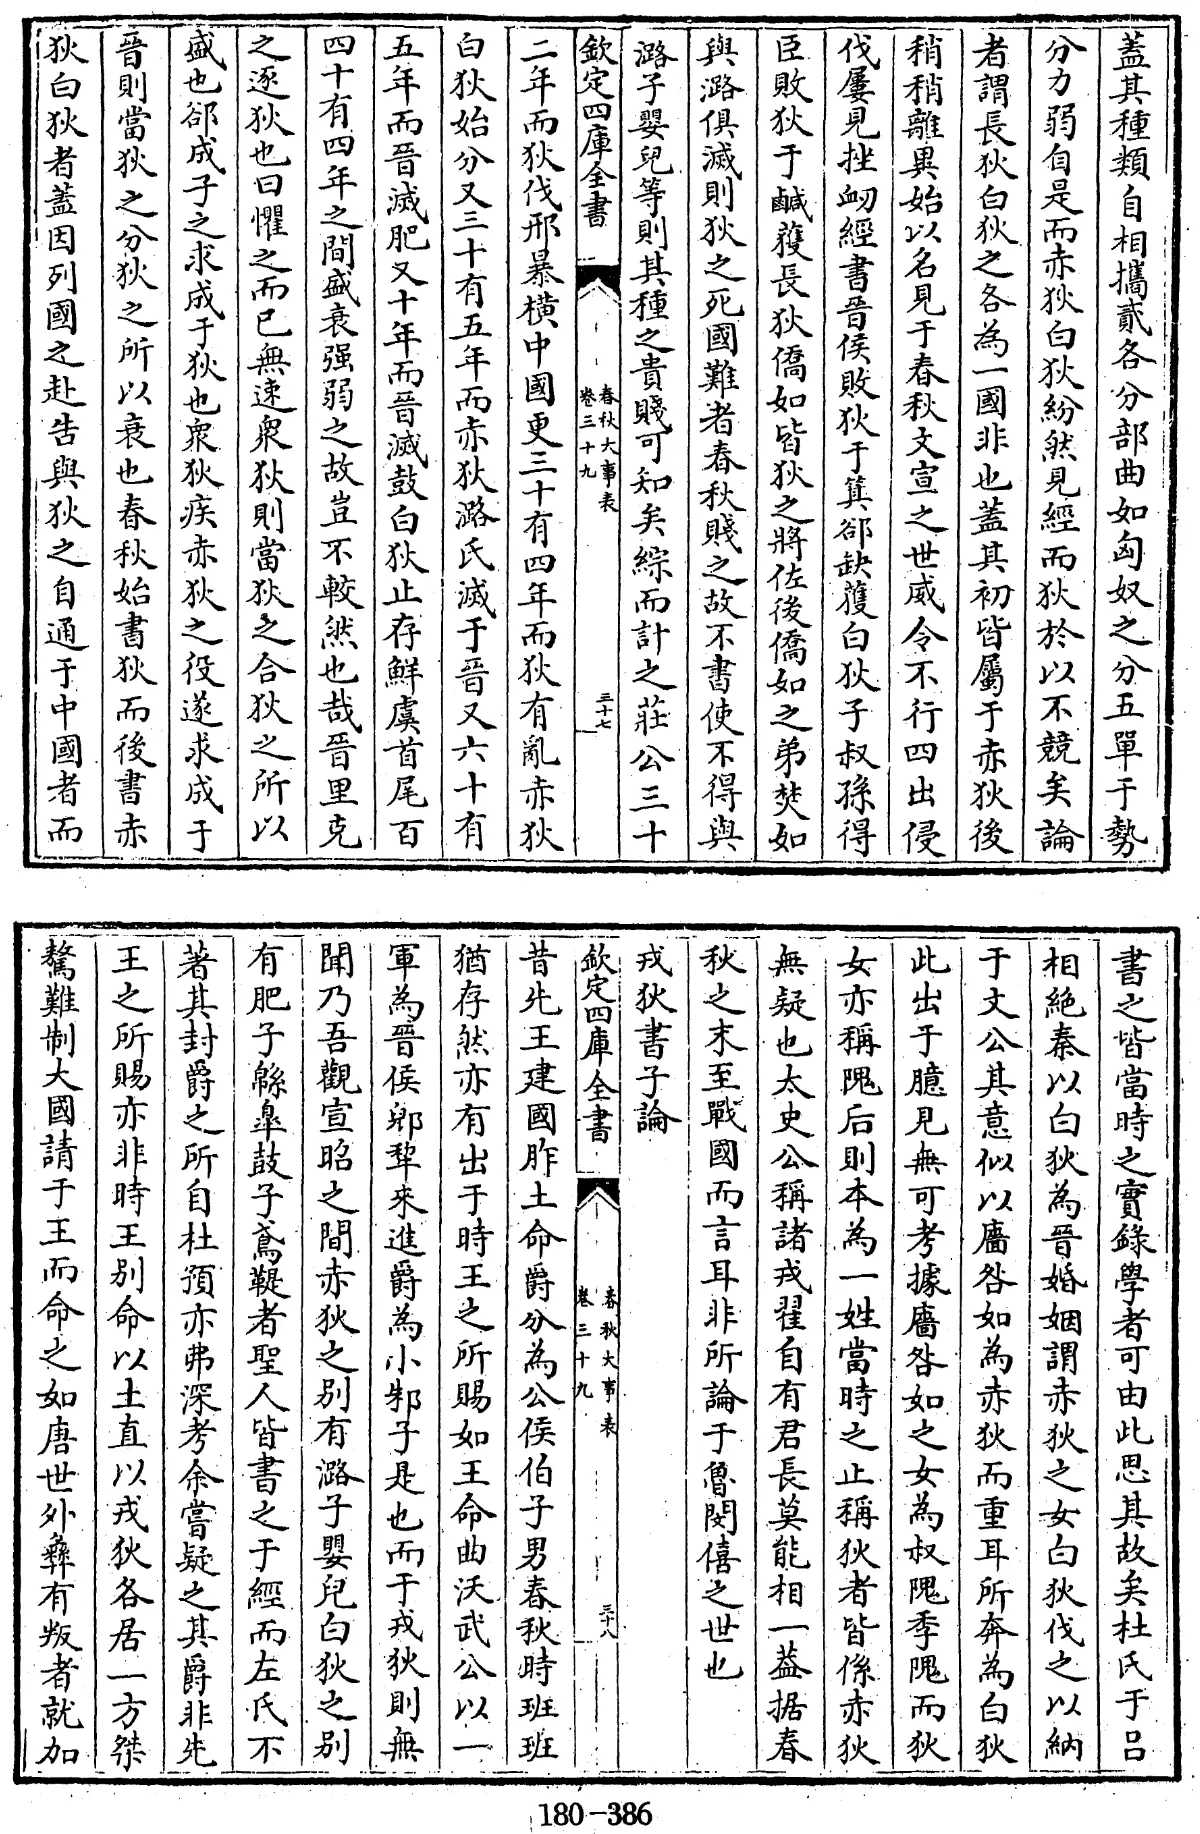 蓋其種類自相攜貳各分部曲如匈奴之分五單于勢
分力弱自是而赤狄白狄紛然見經而狄於以不競矣論
者謂長狄白狄之各為一國非也蓋其初皆屬于赤狄後
稍稍離異始以名見于春秋文宣之世威令不行四出侵
伐屢見挫衂經書晉侯敗狄于箕郤缺獲白狄子叔孫得
臣敗狄于鹹獲長狄僑如皆狄之將佐後僑如之弟焚如
與潞俱滅則狄之死國難者春秋賤之故不書使不得與
潞子嬰兒等則其種之貴賤可知矣綜而計之莊公三十
欽定四庫全書
春秋大事表
卷三十九
三十七
二年而狄伐邢暴橫中國更三十有四年而狄有亂赤狄
白狄始分又三十有五年而赤狄潞氏滅于晉又六十有
五年而晉滅肥又十年而晉滅鼓白狄止存鮮虞首尾百
四十有四年之間盛衰强弱之故豈不較然也哉晉里克
之逐狄也曰懼之而已無速衆狄則當狄之合狄之所以
盛也郤成子之求成于狄也衆狄疾赤狄之役遂求成于
晉則當狄之分狄之所以衰也春秋始書狄而後書赤
狄白狄者蓋因列國之赴告與狄之自通于中國者而
書之皆當時之實錄學者可由此思其故矣杜氏于呂
相絶秦以白狄為晉婚姻謂赤狄之女白狄伐之以納
于文公其意似以廧咎如為赤狄而重耳所奔為白狄
此出于臆見無可考據廧咎如之女為叔隗季隗而狄
女亦稱隗后則本為一姓當時之止稱狄者皆係赤狄
無疑也太史公稱諸戎翟自有君長莫能相一蓋据春
秋之末至戰國而言耳非所論于魯閔僖之世也
戎狄書子論
欽定四庫全書
春秋大事表
卷三十九
三十八
昔先王建國胙土命爵分為公侯伯子男春秋時班班
猶存然亦有出于時王之所賜如王命曲沃武公以一
軍為晉侯郳犂來進爵為小邾子是也而于戎狄則無
聞乃吾觀宣昭之間赤狄之別有潞子嬰兒白狄之別
有肥子緜臯鼓子鳶鞮者聖人皆書之于經而左氏不
著其封爵之所自杜預亦弗深考余嘗疑之其爵非先
王之所賜亦非時王別命以土直以戎狄各居一方桀
驁難制大國請于王而命之如唐世外彝有叛者就加
180-386